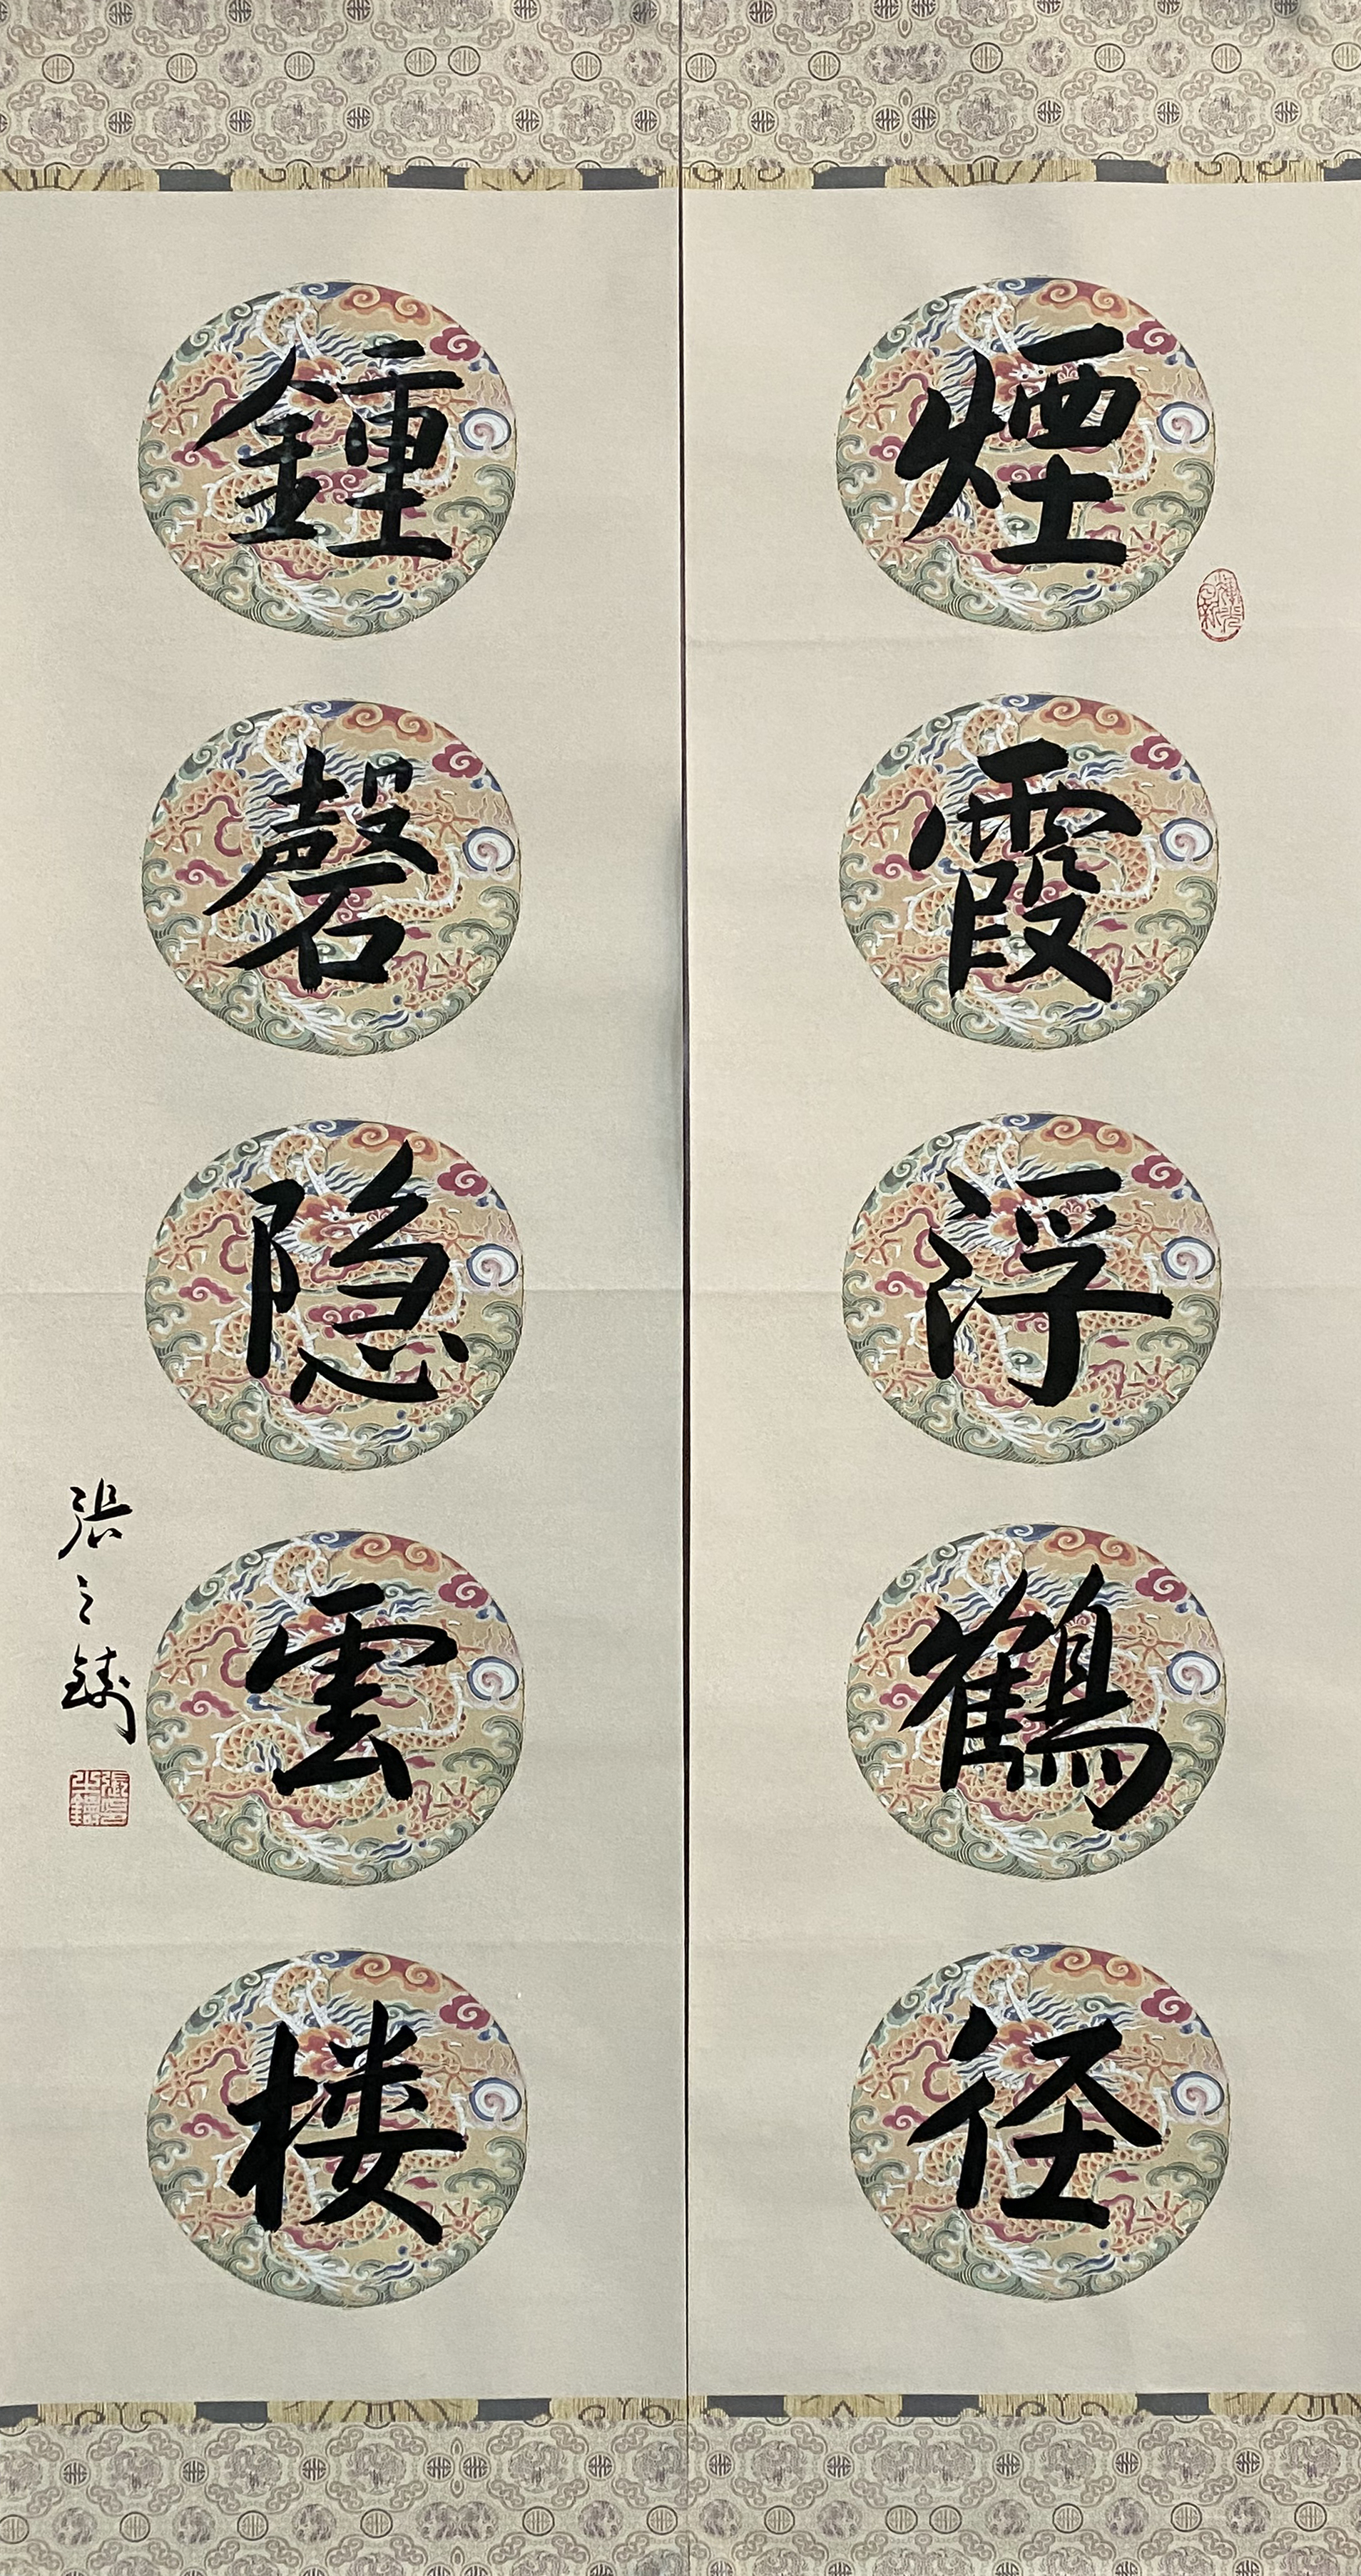 煙霞浮鶴径
鍾磬隐雲楼
張之鑄